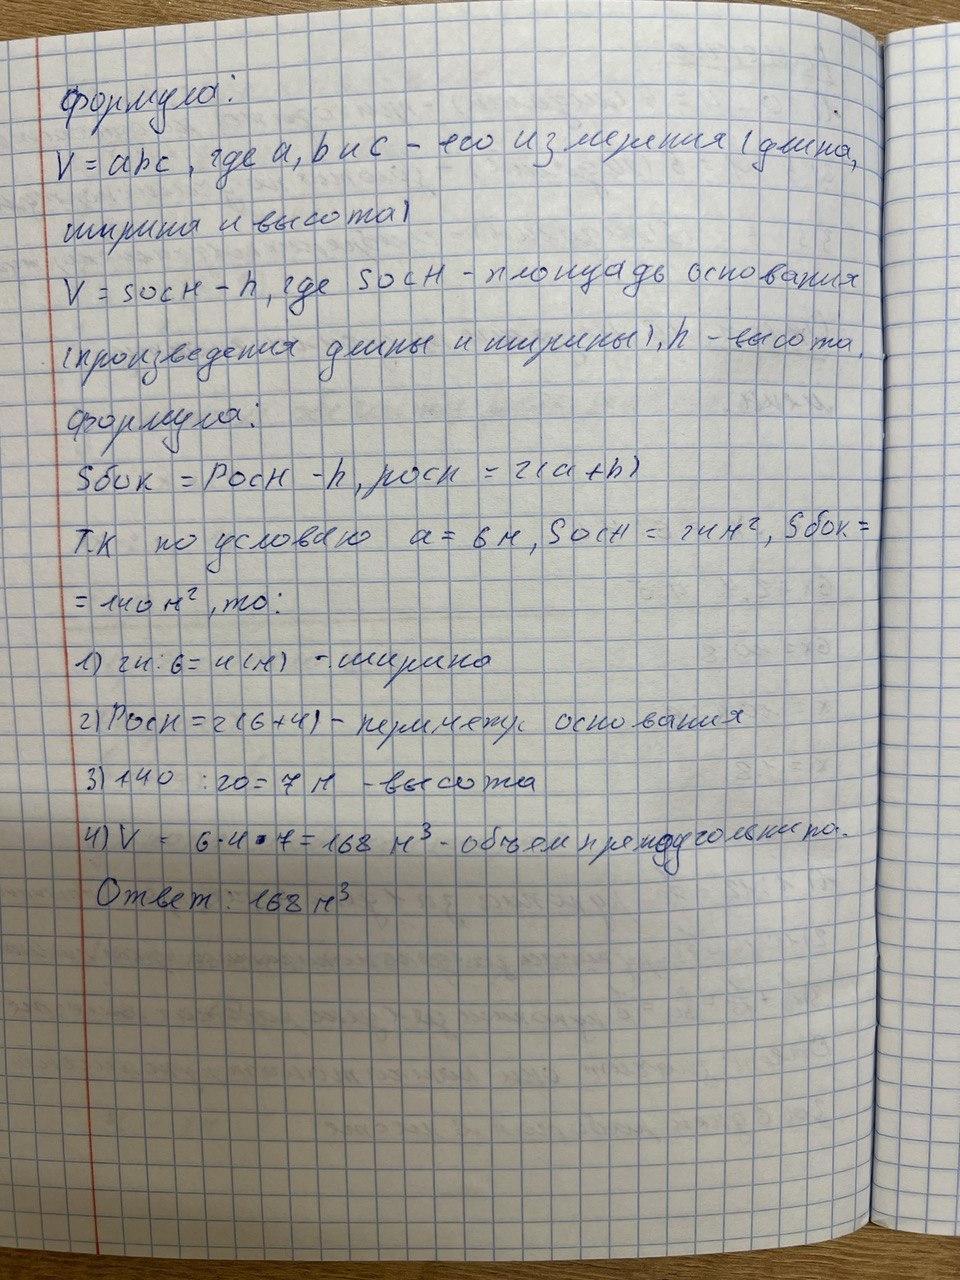 Формула:
V = abc, где a, b и c - его измерения (длина,
ширина и высота)
V = Sосн - h, где Sосн - площадь основания
(произведения длины и ширины), h - высота.
Формула:
Sбок = Pосн - h, pосн = 2(a + b)
Т.к по условию a = 6м, Sосн = 24м², Sбок =
= 140м², то:
1) 24 : 6 = 4(м) - ширина
2) Pосн = 2(6+4) - периметр основания
3) 140 : 20 = 7 м - высота
4) V = 6·4·7 = 168 м³ - объем прямоугольника.
Ответ: 168 м³